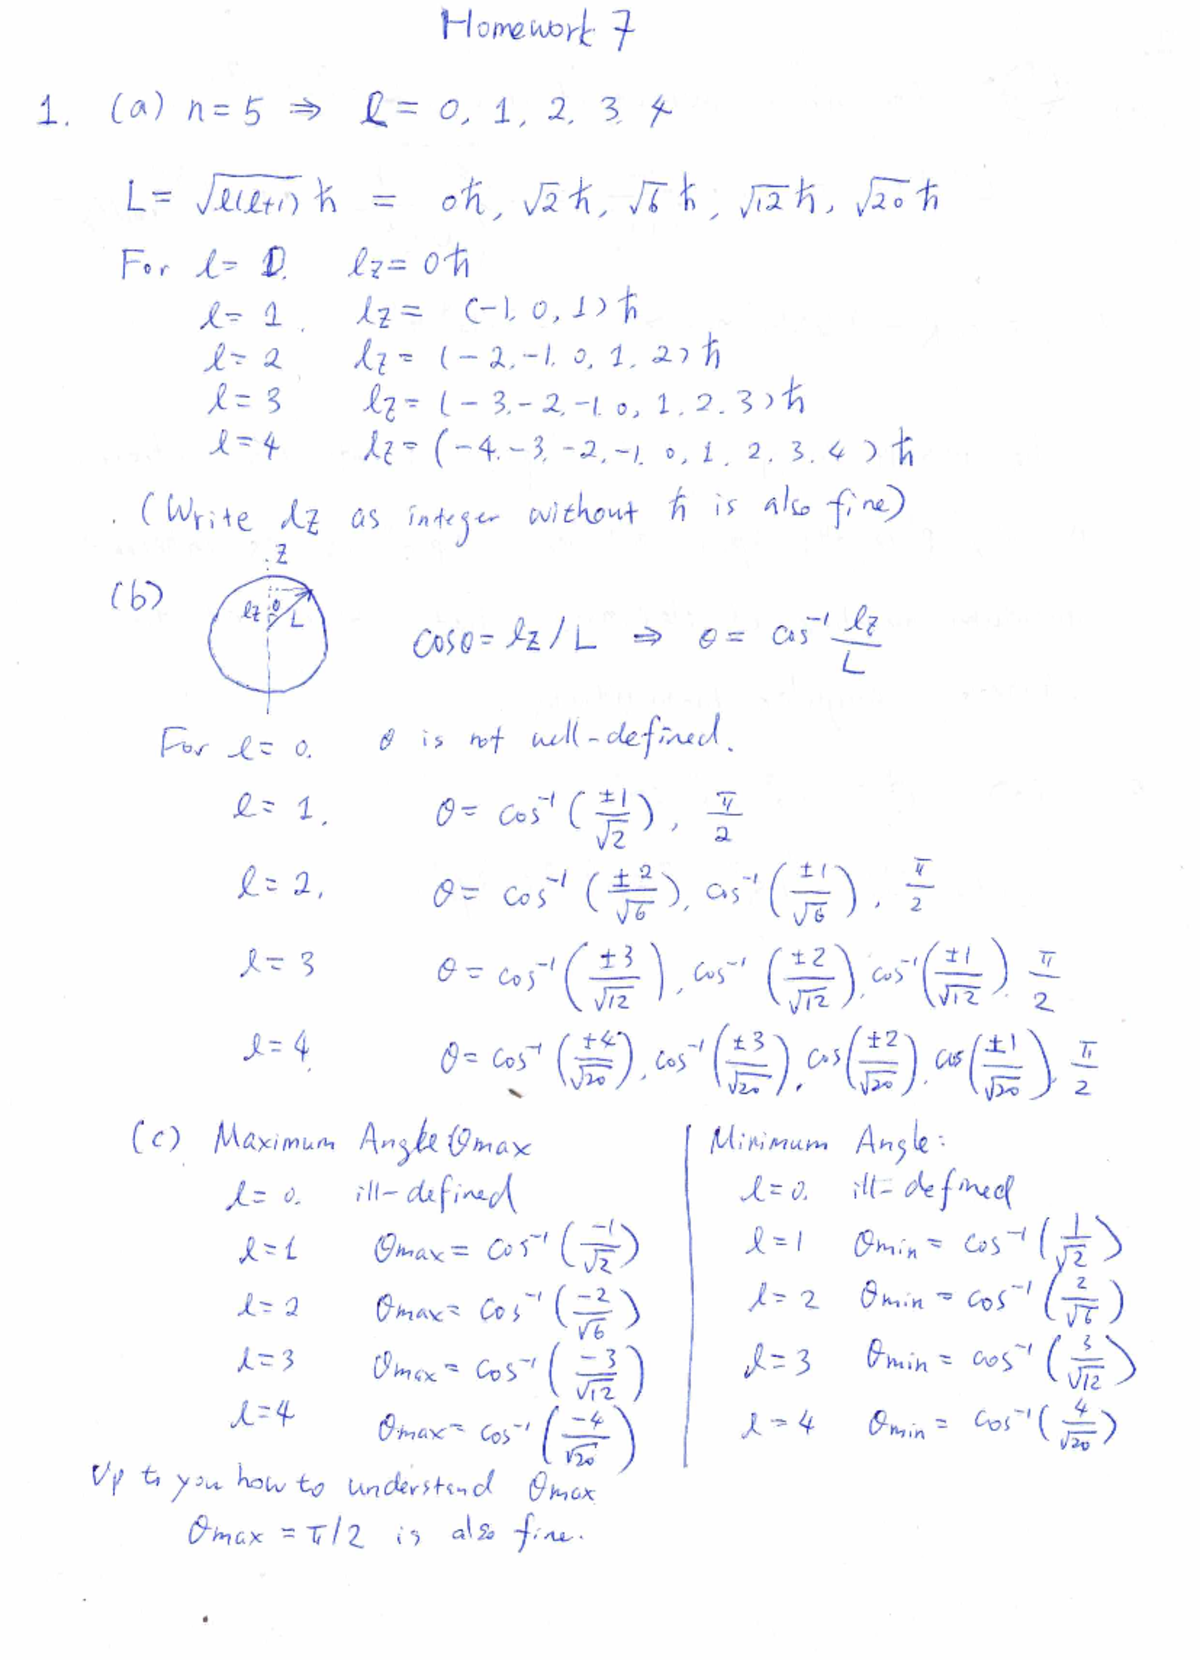 Homework 7
1. (a) n=5 ⇒ l= 0, 1, 2, 3, 4
L= √l(l+1) ħ = 0ħ, √2 ħ, √6 ħ, √12 ħ, √20 ħ
For l= 0. lz= 0ħ
l= 1. lz= (-1, 0, 1) ħ
l= 2 lz= (-2, -1, 0, 1, 2) ħ
l= 3 lz= (-3, -2, -1, 0, 1, 2, 3) ħ
l=4 lz= (-4, -3, -2, -1, 0, 1, 2, 3, 4) ħ
(Write lz as integer without ħ is also fine)
z
(b) lz θ L cosθ= lz/L ⇒ θ= cos⁻¹ lz/L
For l= 0. θ is not well-defined.
l= 1, θ= cos⁻¹(±1/√2), π/2
l= 2, θ= cos⁻¹(±2/√6), cos⁻¹(±1/√6), π/2
l= 3 θ= cos⁻¹(±3/√12), cos⁻¹(±2/√12), cos⁻¹(±1/√12), π/2
l=4. θ= cos⁻¹(±4/√20), cos⁻¹(±3/√20), cos(±2/√20), cos(±1/√20), π/2
(c) Maximum Angle θmax
l= 0. ill-defined
l=1 θmax= cos⁻¹(-1/√2)
l=2 θmax= cos⁻¹(-2/√6)
l=3 θmax= cos⁻¹(-3/√12)
l=4 θmax= cos⁻¹(-4/√20)
Up to you how to understand θmax
θmax = π/2 is also fine.
Minimum Angle:
l=0. ill-defined
l=1 θmin= cos⁻¹(1/√2)
l=2 θmin= cos⁻¹(2/√6)
l=3 θmin= cos⁻¹(3/√12)
l=4 θmin= cos⁻¹(4/√20)